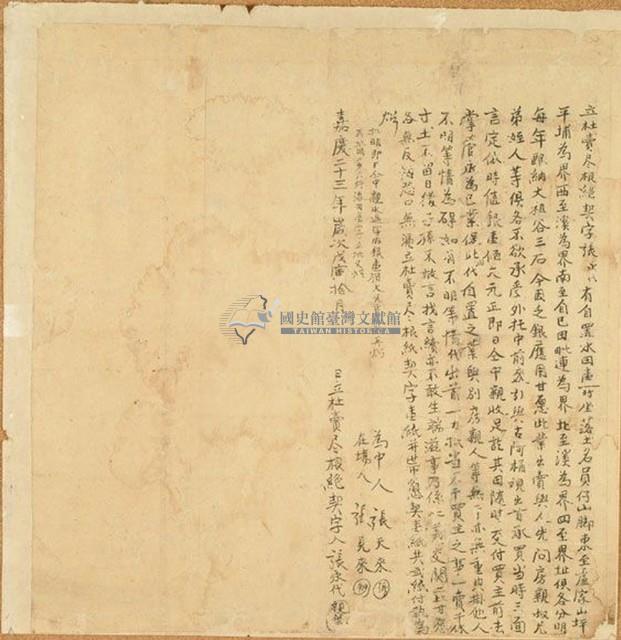 立杜賣尽根絕契字張永代有自置水田壹坵坐落土名員仔山脚東至盧家山坪
年埔為界西至溪為界南至自己田毗連為界北至溪為界四至界址俱各分明
每年配納大租谷三石今因乏銀應用甘愿此業出賣與人先問房親叔兄
弟姪人等俱各不欲承受外托中前來引與古阿桶視出首承買當時三面
言定依時值銀壹佰六元正即日仝中親收足訖其田隨時交付買主前去
掌管永為己業保此代自置之業與別房親人等無干亦無重典掛他人
不明等情為碍如有不明等情代出首一力抵当不干買主之事一賣千休
寸土不留日後子孫不敢言找言續亦不敢生端滋事乃係二家交關二比甘愿
各無反悔恐口無憑立杜賣尽根紙契字壹紙并帶愿契壹紙共弍紙付執為
炤
批明即日仝中親收過字內銀壹佰六元正再炤
嘉慶二十三年歲次戊寅拾月
日立杜賣尽根絕契字人張永代
為中人 張天來
在場人 張見來
國史館臺灣文獻館
TAIWAN HISTORICA